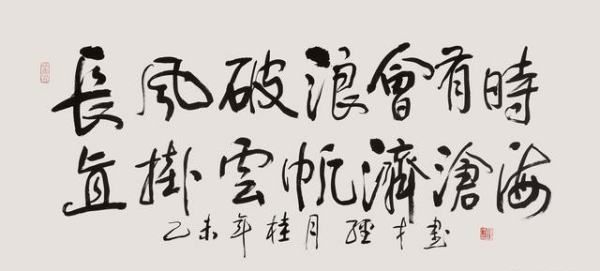 長風破浪會有時
直掛雲帆濟滄海
乙未年桂月經才書